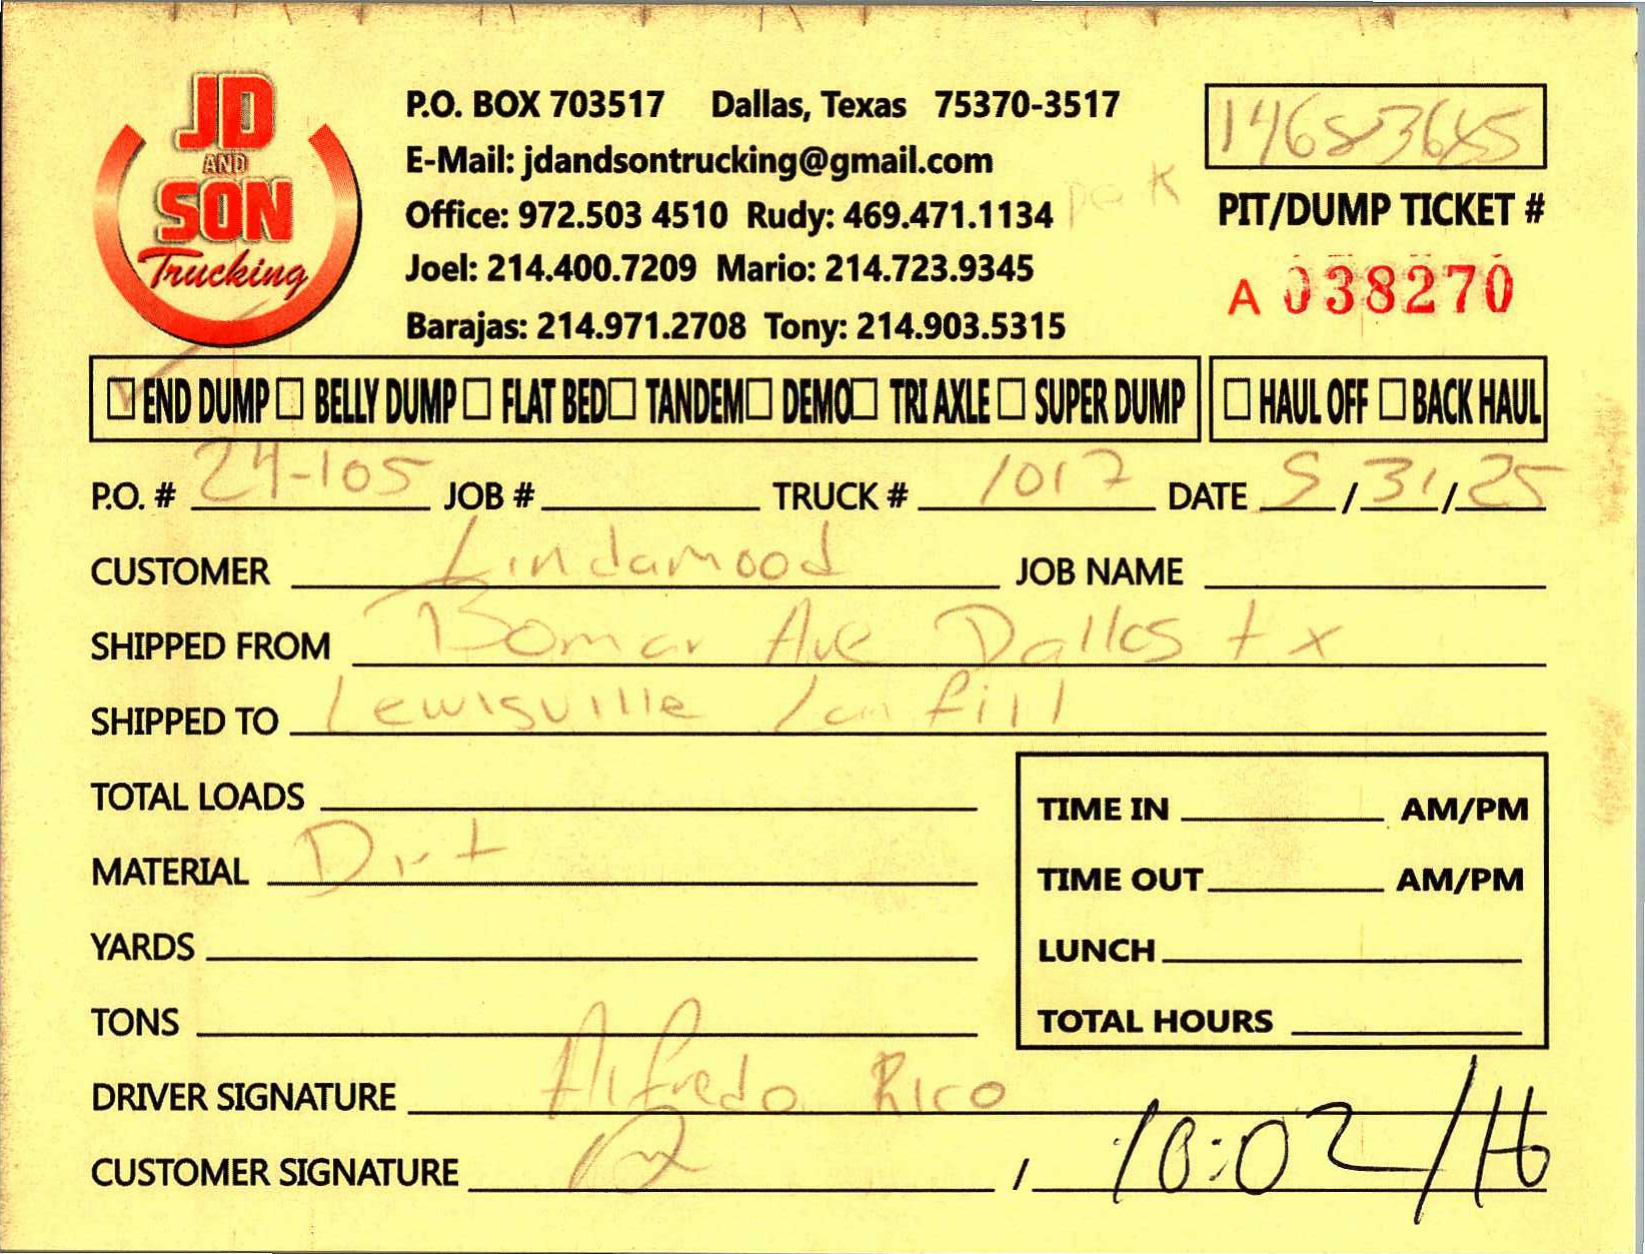 JD
AND
SON
Trucking
P.O. BOX 703517 Dallas, Texas 75370-3517
E-Mail: jdandsontrucking@gmail.com
Office: 972.503 4510 Rudy: 469.471.1134
Joel: 214.400.7209 Mario: 214.723.9345
Barajas: 214.971.2708 Tony: 214.903.5315
14683645
PIT/DUMP TICKET #
A 038270
☑ END DUMP ☐ BELLY DUMP ☐ FLAT BED ☐ TANDEM ☐ DEMO ☐ TRI AXLE ☐ SUPER DUMP ☐ HAUL OFF ☐ BACK HAUL
P.O. # 24-105 JOB # TRUCK # 1017 DATE 5/31/25
CUSTOMER Lindamood JOB NAME
SHIPPED FROM Bomar Ave Dallas tx
SHIPPED TO Lewisville lanfill
TOTAL LOADS
MATERIAL Dirt
YARDS
TONS
TIME IN AM/PM
TIME OUT AM/PM
LUNCH
TOTAL HOURS
DRIVER SIGNATURE Alfredo Rico
CUSTOMER SIGNATURE , 10:02/